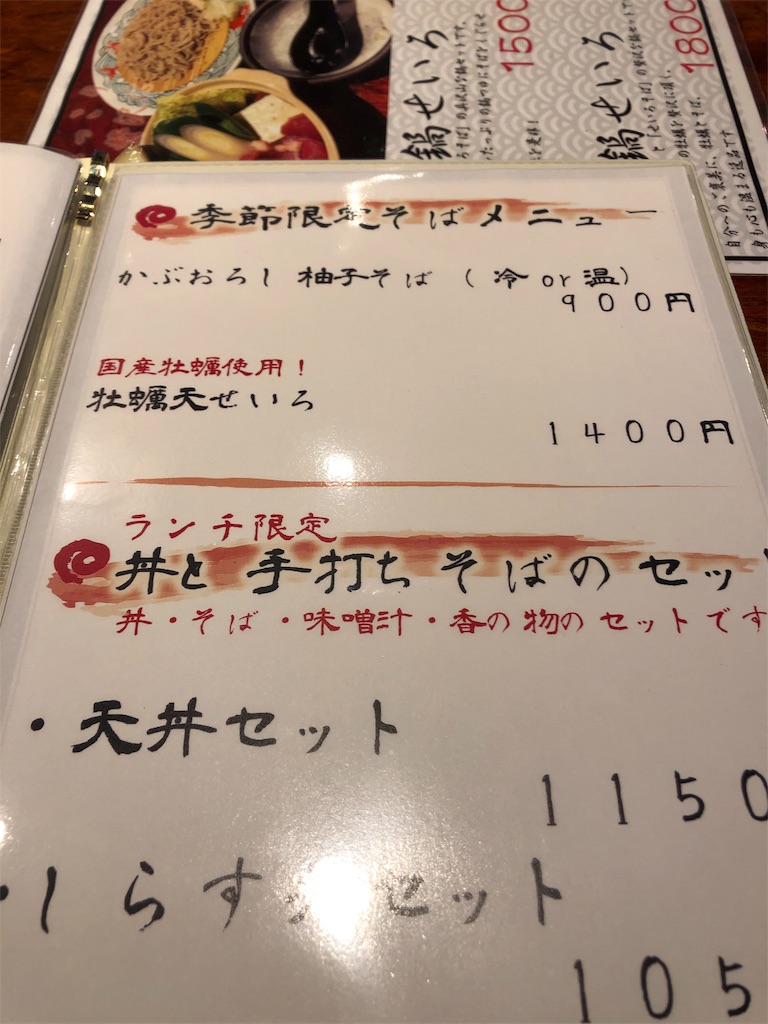 鍋せいろ
1500
鍋せいろ
1800
自分へのご褒美に、
身も心も温まる逸品です
季節限定そばメニュー
かぶおろし 柚子そば (冷or温)
900円
国産牡蠣使用!
牡蠣天せいろ
1400円
ランチ限定
丼と 手打ち そばの セッ
丼・そば・味噌汁・香の物の セットです
・天丼セット
1150
・しらす セット
105